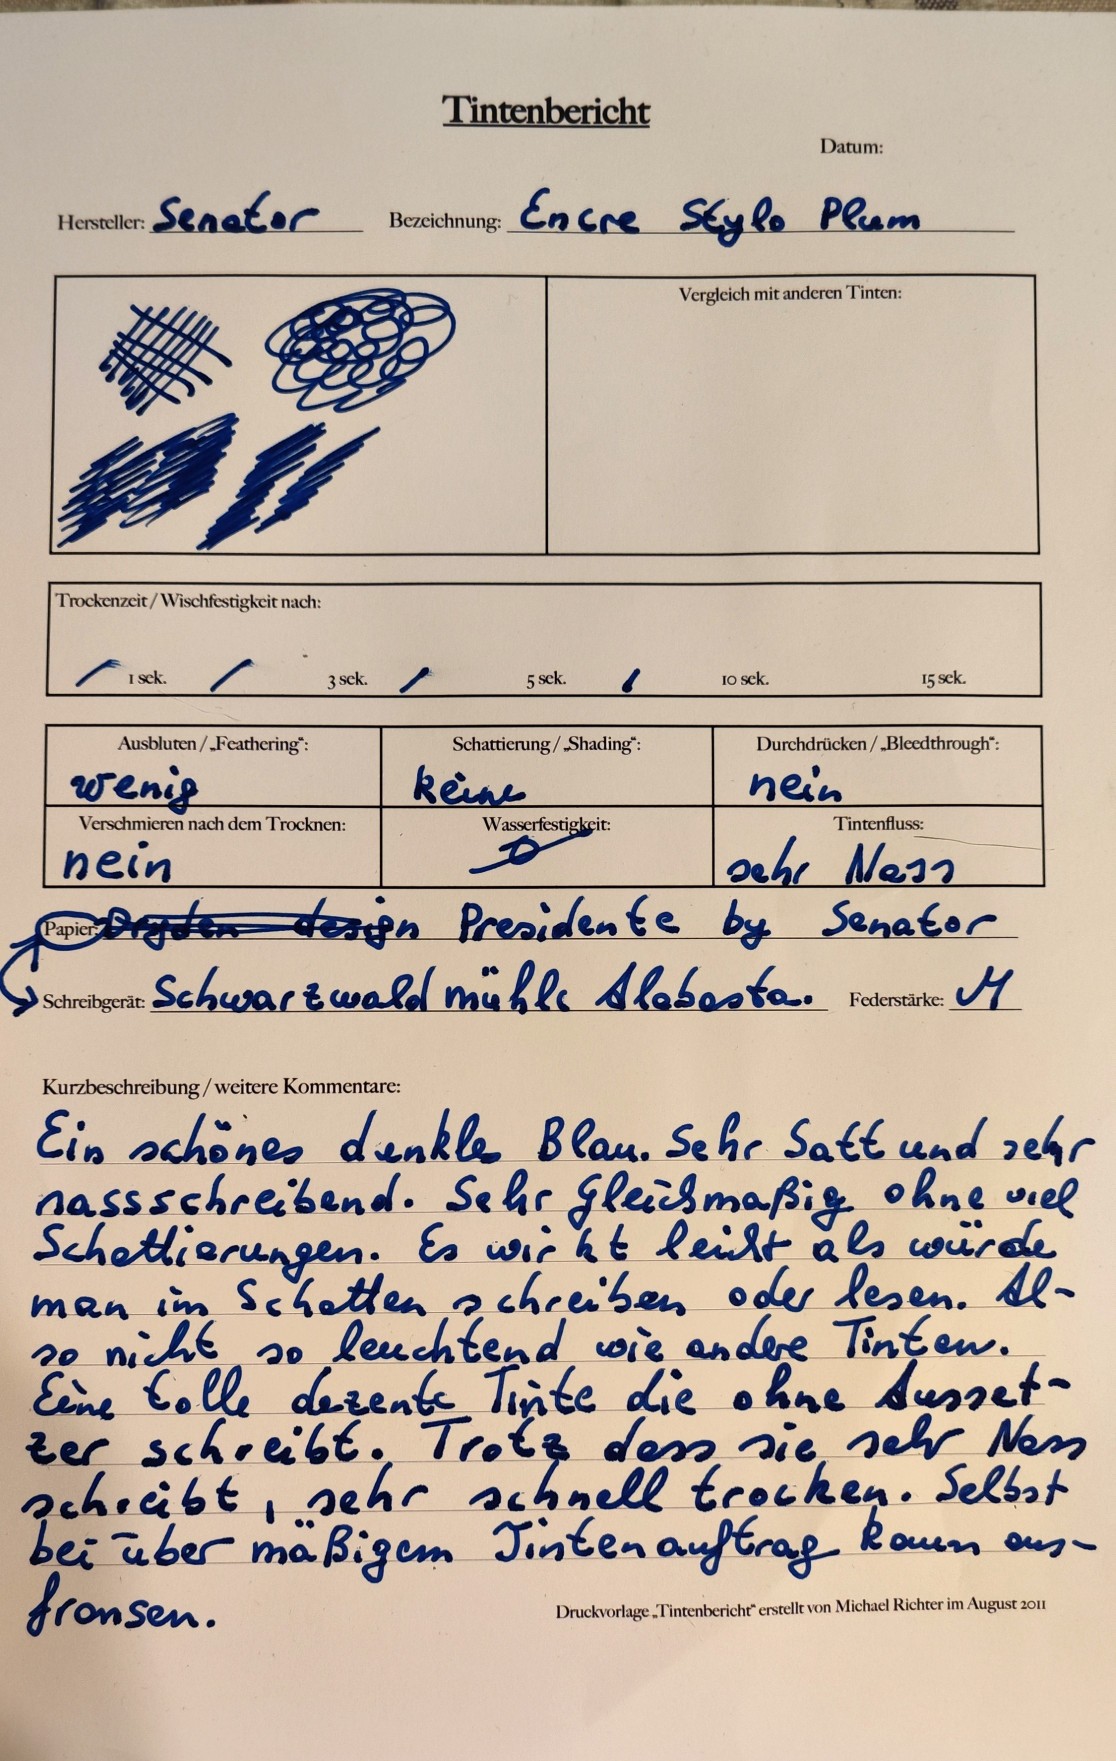 Tintenbericht
Datum:
Hersteller: Senator Bezeichnung: Encre Stylo Plum
Vergleich mit anderen Tinten:
Trockenzeit / Wischfestigkeit nach:
1 sek. 3 sek. 5 sek. 10 sek. 15 sek.
Ausbluten / „Feathering“: Schattierung / „Shading“: Durchdrücken / „Bleedthrough“:
wenig keine nein
Verschmieren nach dem Trocknen: Wasserfestigkeit: Tintenfluss:
nein sehr Nass
Papier: Dryden design Presidente by Senator
Schreibgerät: Schwarzwald mühle Alabasta. Federstärke: M
Kurzbeschreibung / weitere Kommentare:
Ein schönes dunkles Blau. Sehr Satt und sehr
nassschreibend. Sehr Gleichmaßig ohne viel
Schattierungen. Es wirkt leicht als würde
man im Schatten schreiben oder lesen. Al-
so nicht so leuchtend wie andere Tinten.
Eine tolle dezente Tinte die ohne Ausset-
zer schreibt. Trotz dass sie sehr Nass
schreibt, sehr schnell trocken. Selbst
bei über mäßigem Tintenauftrag kaum aus-
fransen.
Druckvorlage „Tintenbericht“ erstellt von Michael Richter im August 2011